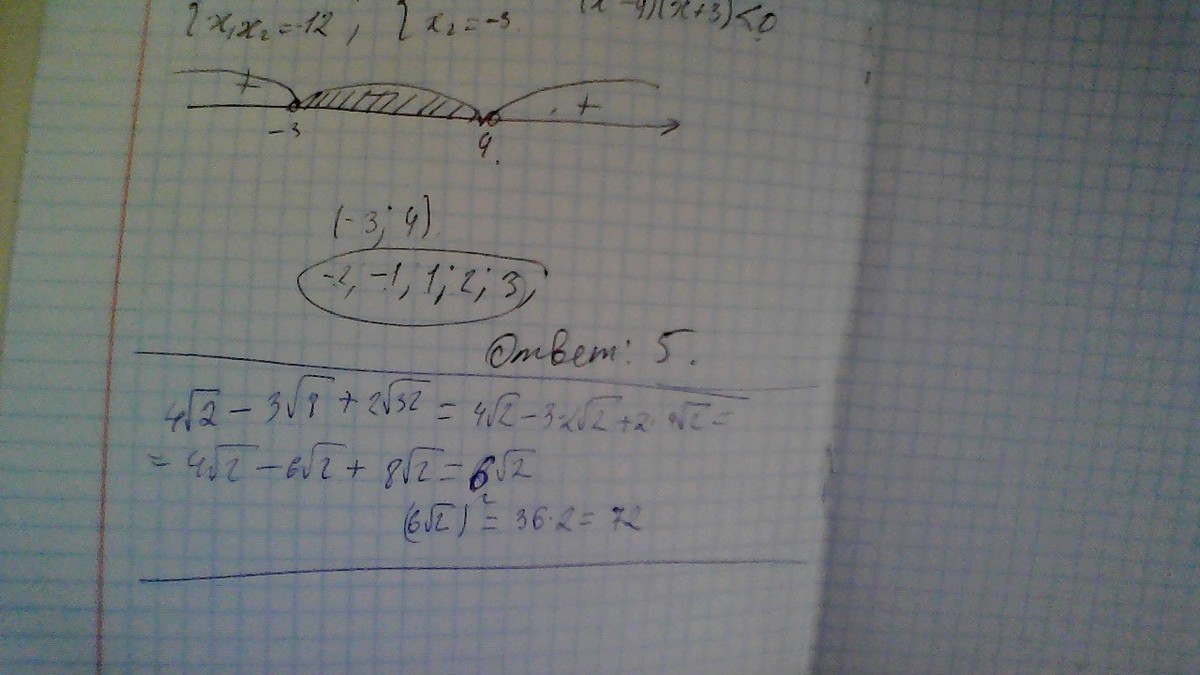 { x₁x₂ = -12 ; { x₂ = -3. (x-4)(x+3)<0
+ - +
-3 4
(-3; 4)
-2, -1, 1; 2; 3,
Ответ: 5.
4√2 - 3√8 + 2√32 = 4√2 - 3·2√2 + 2·4√2 =
= 4√2 - 6√2 + 8√2 = 6√2
(6√2)² = 36·2 = 72